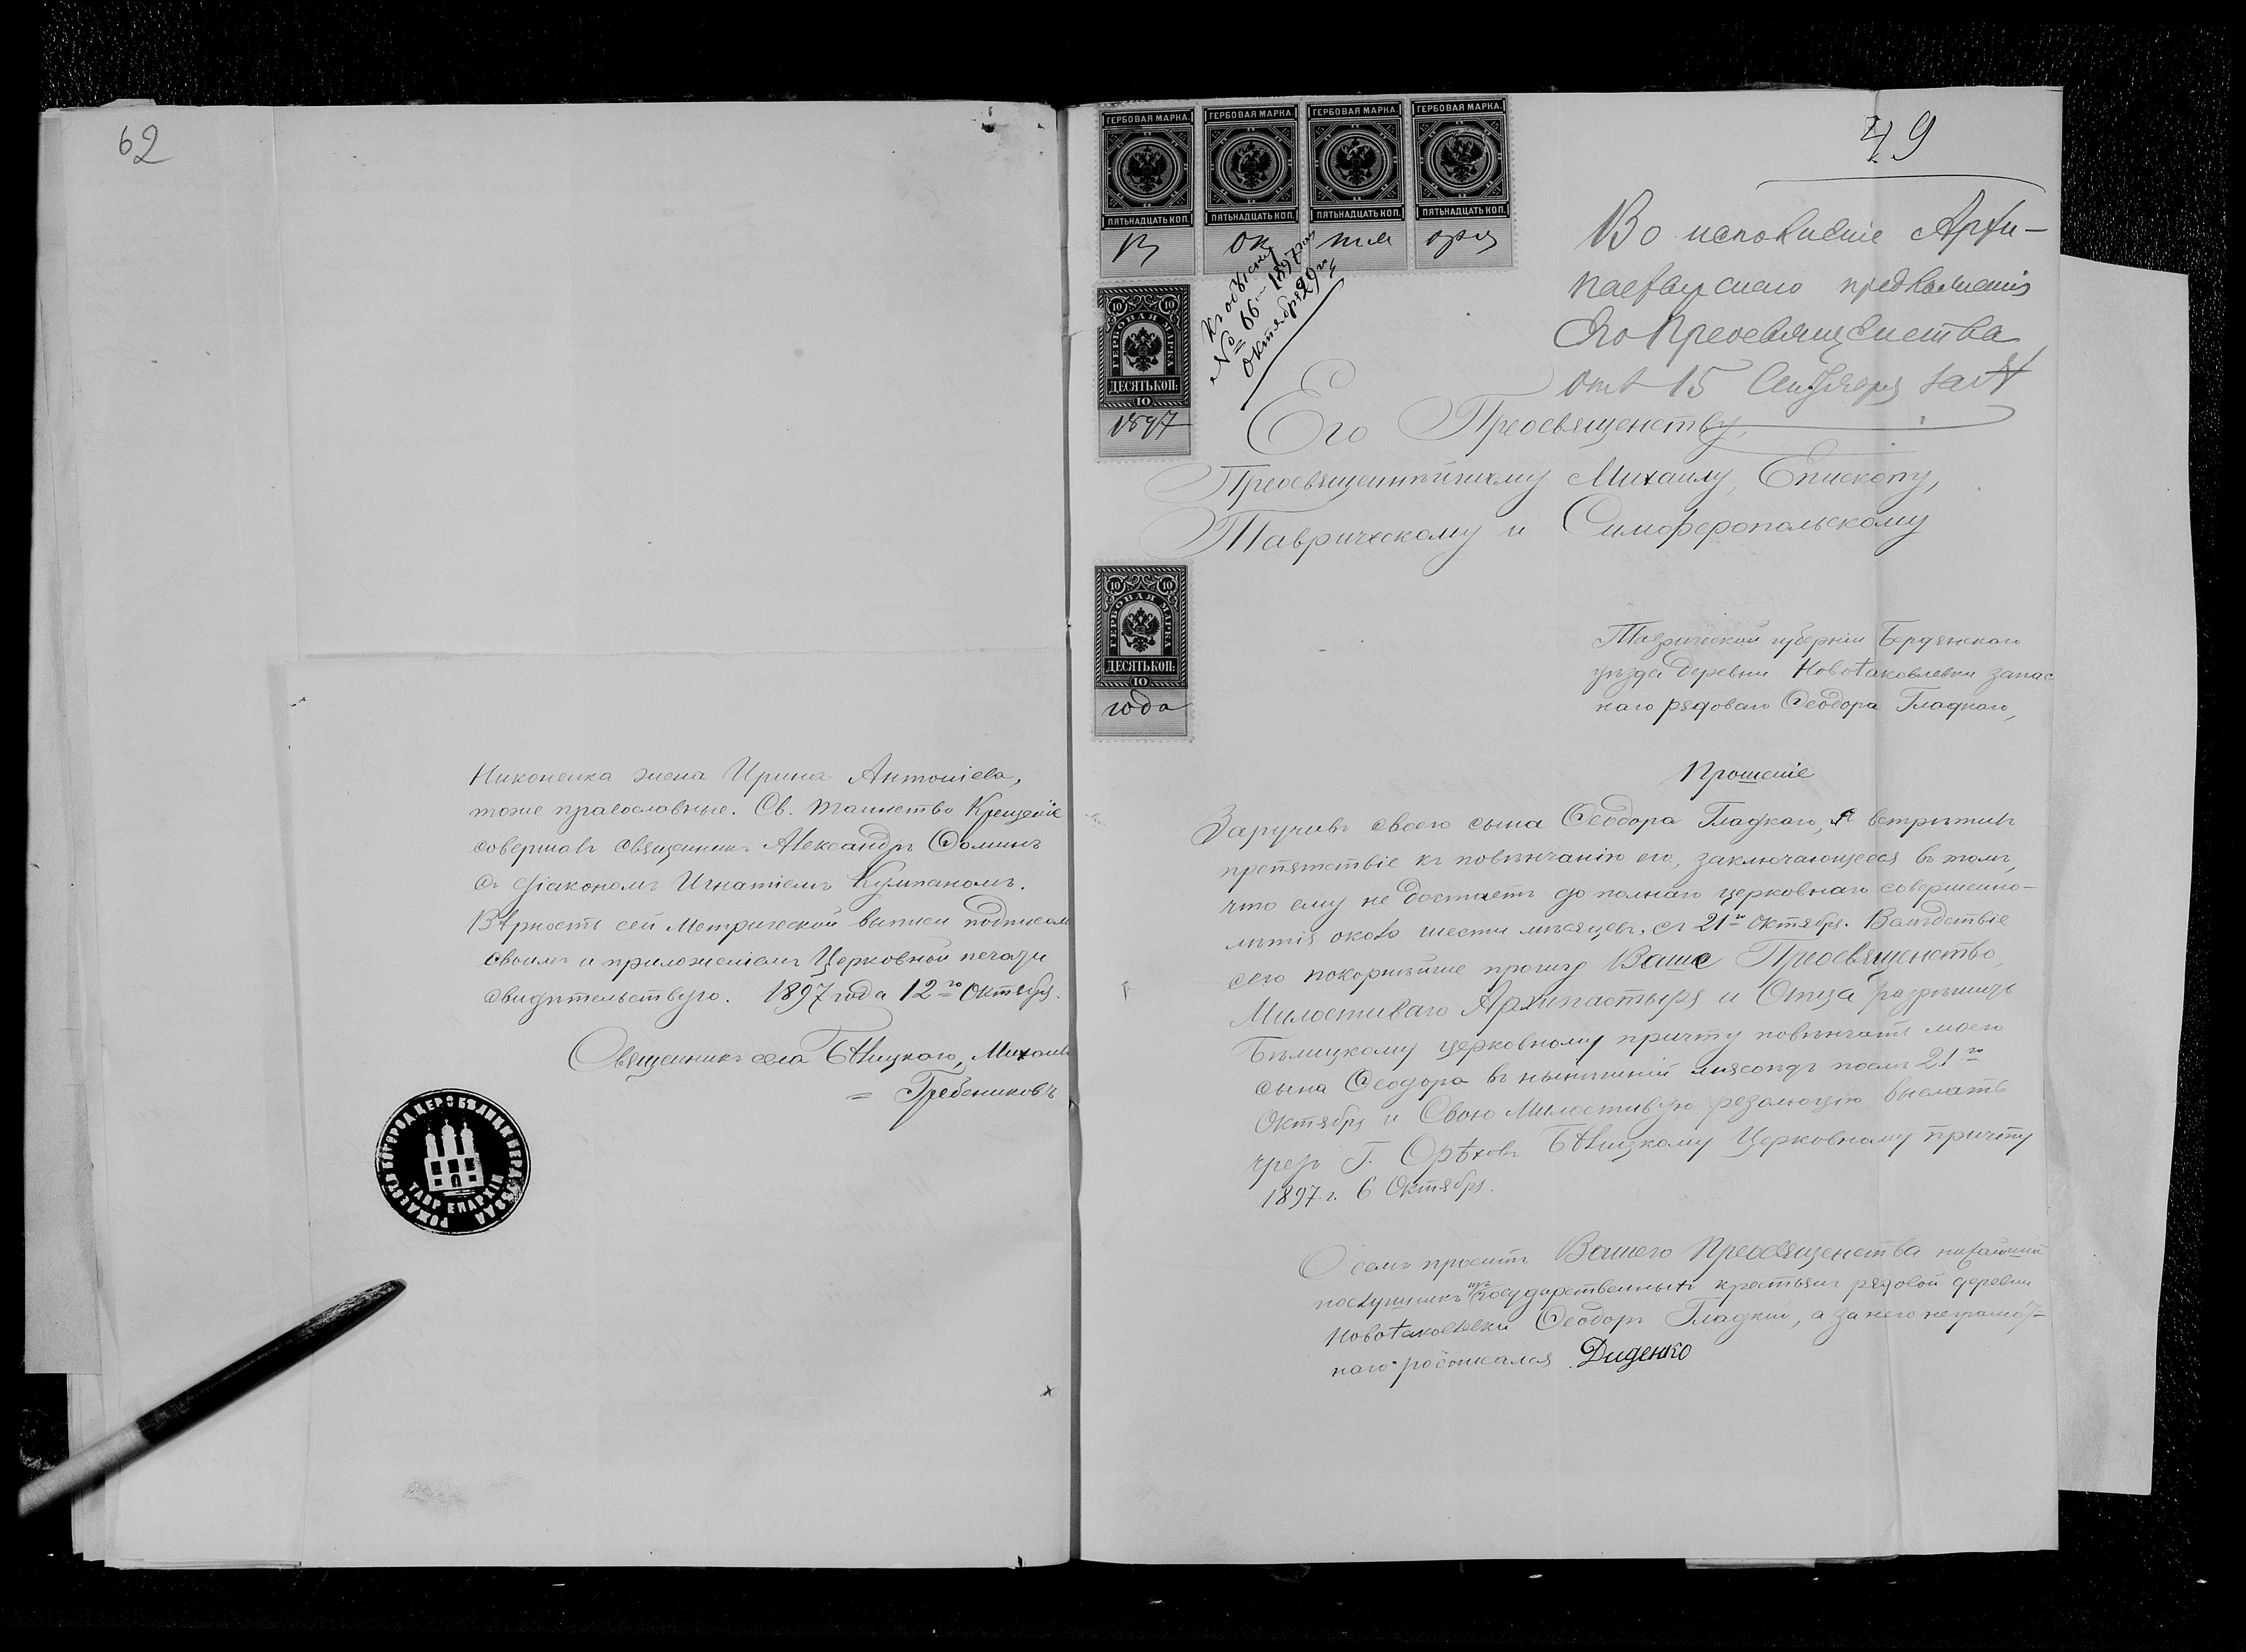 62
Никоненка жена Ирина Антоніева,
тоже православные. Св. таинство Крещеніе
совершалъ священникъ Александръ Ѳоминъ
съ діакономъ Игнатіемъ Кулпаномъ.
Вѣрность сей Метрической выписи подписомъ
своимъ и приложеніемъ Церковной печати
свидѣтельствую. 1897 года 12го Октября.
Священникъ села Бѣлицкаго, Михаилъ
= Гребениковъ
РОЖДЕСТВО БОГОРОД. ЦЕР. С. БѢЛИЦК. БЕРД. УѢЗДА
ТАВР. ЕПАРХІИ
ГЕРБОВАЯ МАРКА. ГЕРБОВАЯ МАРКА. ГЕРБОВАЯ МАРКА. ГЕРБОВАЯ МАРКА.
ПЯТЬНАДЦАТЬ КОП. ПЯТЬНАДЦАТЬ КОП. ПЯТЬНАДЦАТЬ КОП. ПЯТЬНАДЦАТЬ КОП.
13 ок тя бря
49
Къ обыску
№ 66 1897 года
октября 29го
10 10
ГЕРБОВАЯ МАРКА
ДЕСЯТЬ КОП:
10
1897
Во исполненіе Архи-
пастырскаго предложенія
Его Преосвященства
отъ 15 Сентября
Его Преосвященству,
Преосвященнѣйшему Михаилу, Епископу,
Таврическому и Симферопольскому
10 10
ГЕРБОВАЯ МАРКА
ДЕСЯТЬ КОП:
10
года
Таврической губерніи Бердянскаго
уѣзда деревни Новоtаковлевки запас
наго рядоваго Ѳеодора Гладкаго,
Прошеніе
Заручивъ своего сына Ѳеодора Гладкаго, я встрѣтилъ
препятствіе къ повѣнчанію его, заключающееся въ томъ,
что ему не достаетъ до полнаго церковнаго совершенно-
лѣтія около шести мѣсяцевъ, съ 21го Октября. Вслѣдствіе
сего покорнѣйше прошу Ваше Преосвященство,
Милостиваго Архипастыря и Отца разрѣшить
Бѣлицкому церковному причту повѣнчать моего
сына Ѳеодора въ нынѣшній мясоядъ послѣ 21го
Октября и Свою Милостивую резолюцію выслать
чрезъ Г. Орѣховъ Бѣлицкому Церковному причту
1897 г. 6 Октября.
О семъ проситъ Вашего Преосвященства нижайшій
послушникъ изъ государственныхъ крестьянъ рядовой деревни
Новоtаковлевки Ѳеодоръ Гладкій, а за него неграмот-
наго росписался Диденко